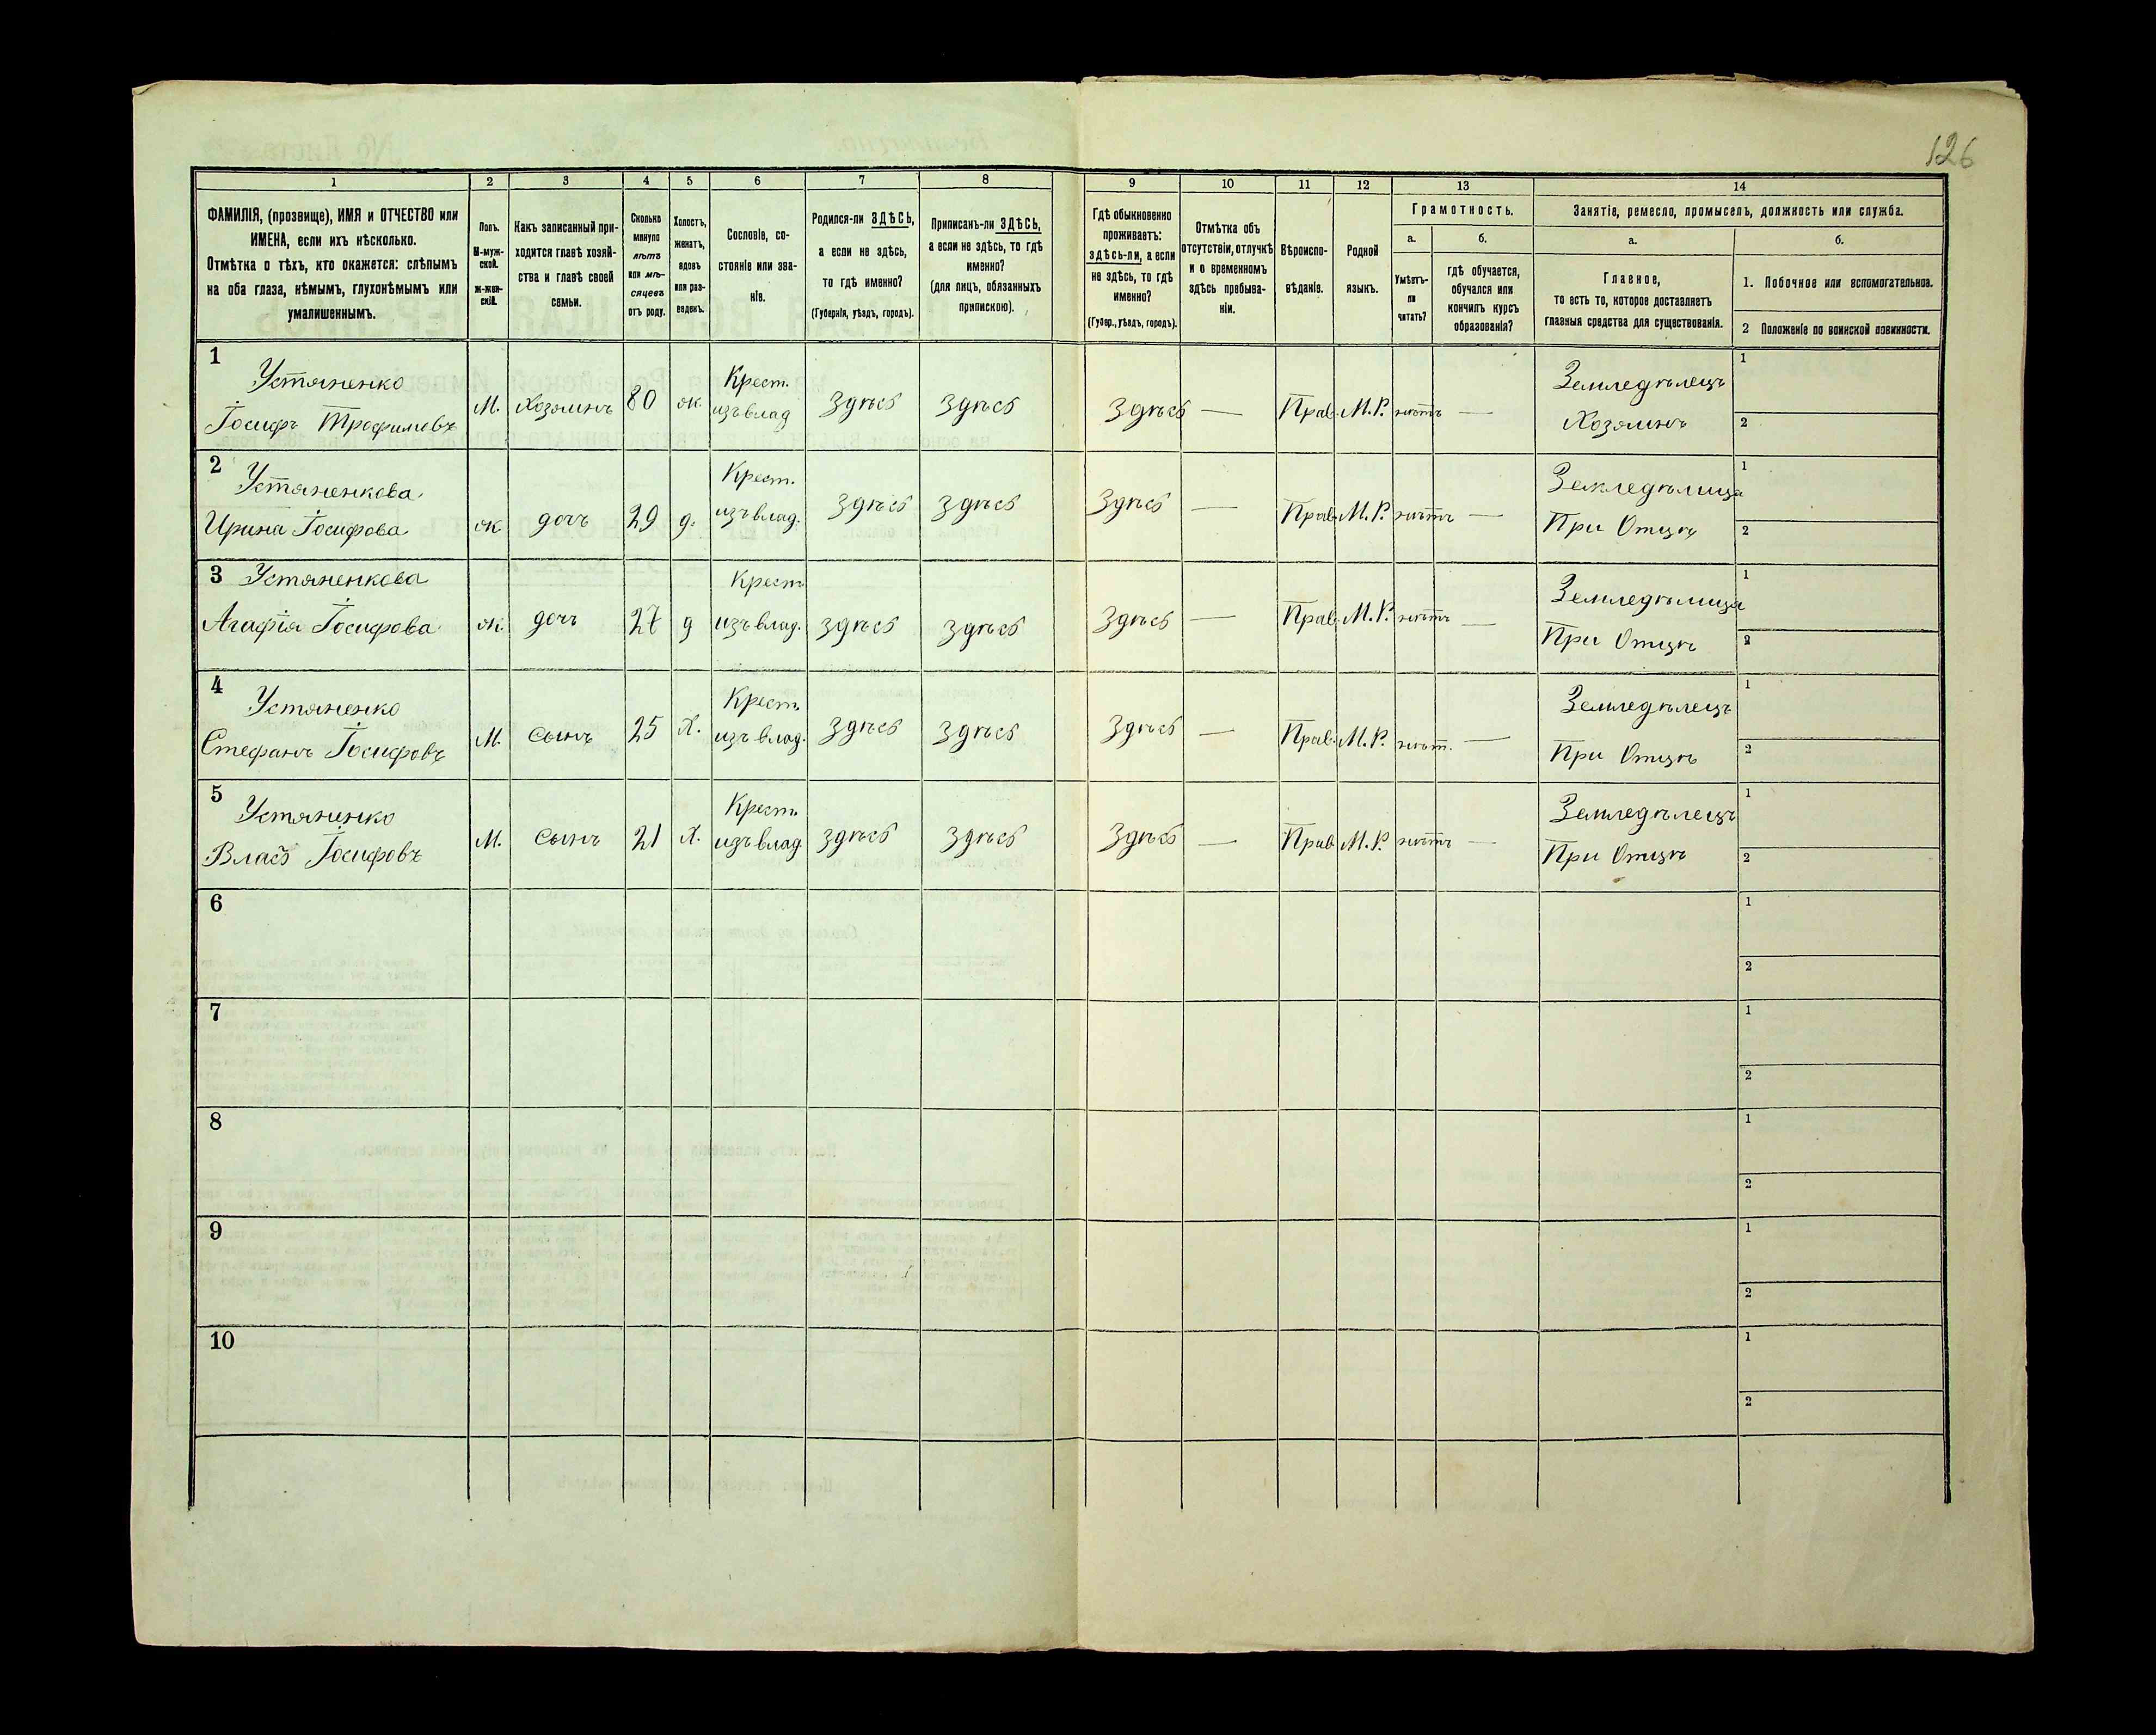 126
1 2 3 4 5 6 7 8 9 10 11 12 13 14
ФАМИЛІЯ, (прозвище), ИМЯ и ОТЧЕСТВО или
ИМЕНА, если ихъ нѣсколько.
Отмѣтка о тѣхъ, кто окажется: слѣпымъ
на оба глаза, нѣмымъ, глухонѣмымъ или
умалишеннымъ.
Полъ.
М-муж-
ской.
Ж-жен-
скій.
Какъ записанный при-
ходится главѣ хозяй-
ства и главѣ своей
семьи.
Сколько
минуло
лѣтъ
или мѣ-
сяцевъ
отъ роду.
Холостъ,
женатъ,
вдовъ
или раз-
веденъ.
Сословіе, со-
стояніе или зва-
ніе.
Родился-ли ЗДѢСЬ,
а если не здѣсь,
то гдѣ именно?
(Губернія, уѣздъ, городъ).
Приписанъ-ли ЗДѢСЬ,
а если не здѣсь, то гдѣ
именно?
(для лицъ, обязанныхъ
припискою).
Гдѣ обыкновенно
проживаетъ:
здѣсь-ли, а если
не здѣсь, то гдѣ
именно?
(Губер., уѣздъ, городъ).
Отмѣтка объ
отсутствіи, отлучкѣ
и о временномъ
здѣсь пребыва-
ніи.
Вѣроиспо-
вѣданіе.
Родной
языкъ.
Грамотность.
а.
Умѣетъ-
ли
читать?
б.
гдѣ обучается,
обучался или
кончилъ курсъ
образованія?
Занятіе, ремесло, промыселъ, должность или служба.
а.
Главное,
то есть то, которое доставляетъ
главныя средства для существованія.
б.
1. Побочное или вспомогательное.
2 Положеніе по воинской повинности.
1 Устяненко Крест. Земледѣлецъ 1
Іосифъ Трофимовъ М. Хозяинъ 80 ж. изъ влад здѣсь здѣсь здѣсь — Прав. М.Р. нѣтъ — Хозяинъ 2
2 Устяненкова Крест. Земледѣлица 1
Ирина Іосифова ж дочь 29 д. изъ влад. здѣсь здѣсь здѣсь — Прав. М.Р. нѣтъ — При Отцѣ 2
3 Устяненкова Крест. Земледѣлица 1
Агафія Іосифова ж дочь 27 д изъ влад. здѣсь здѣсь здѣсь — Прав. М.Р. нѣтъ — При Отцѣ 2
4 Устяненко Крест. Земледѣлецъ 1
Стефанъ Іосифовъ М. сынъ 25 х. изъ влад. здѣсь здѣсь здѣсь — Прав. М.Р. нѣт. — При Отцѣ 2
5 Устяненко Крест. Земледѣлецъ 1
Власъ Іосифовъ М. сынъ 21 х. изъ влад. здѣсь здѣсь здѣсь — Прав. М.Р. нѣтъ — При Отцѣ 2
6 1
2
7 1
2
8 1
2
9 1
2
10 1
2